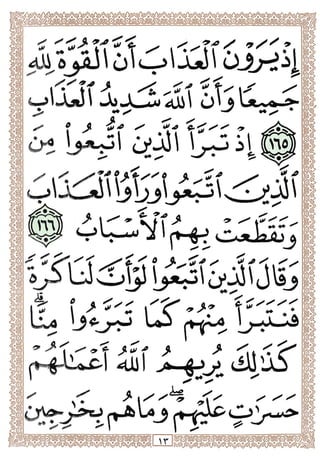 إِذْ يَرَوْنَ ٱلْعَذَابَ أَنَّ ٱلْقُوَّةَ لِلَّهِ
جَمِيعًا وَأَنَّ ٱللَّهَ شَدِيدُ ٱلْعَذَابِ
١٦٥ إِذْ تَبَرَّأَ ٱلَّذِينَ ٱتُّبِعُوا۟ مِنَ
ٱلَّذِينَ ٱتَّبَعُوا۟ وَرَأَوُا۟ ٱلْعَذَابَ
وَتَقَطَّعَتْ بِهِمُ ٱلْأَسْبَابُ ١٦٦
وَقَالَ ٱلَّذِينَ ٱتَّبَعُوا۟ لَوْ أَنَّ لَنَا كَرَّةً
فَنَتَبَرَّأَ مِنْهُمْ كَمَا تَبَرَّءُوا۟ مِنَّا ۗ
كَذَٰلِكَ يُرِيهِمُ ٱللَّهُ أَعْمَـٰلَهُمْ
حَسَرَٰتٍ عَلَيْهِمْ ۖ وَمَا هُم بِخَـٰرِجِينَ
١٣